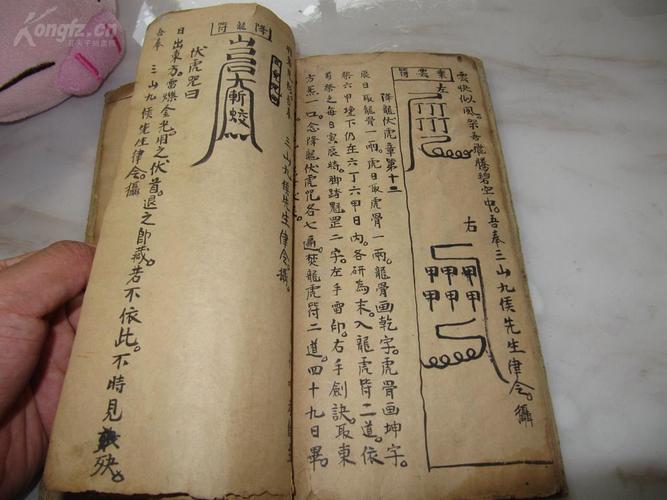 雲快似風。架吾騰騰碧空中。吾奉三山九侯先生律令。攝
乘雲符
左
右
甲甲甲甲
甲甲甲
降龍伏虎章第十三
辰日取龍骨一兩。虎日取虎骨一兩。龍骨画乾字。虎骨画坤字。
祭六甲壇下仍在六丁六甲日內。各研為末。入龍虎符二道。依
前祭之每日寅辰時。脚踏魁罡二字。左手雷印。右手劍訣。取東
方炁一口。念降龍伏虎咒各七遍。焚龍虎符二道。四十九日畢。
三山九侯先生律令攝。
降龍符
斬蛟
伏虎咒曰
日出東方。雷爍金光。用之伏首。退之即藏。若不依此。不時見殃。
吾奉 三山九侯先生律令。攝
Kongfz.cn